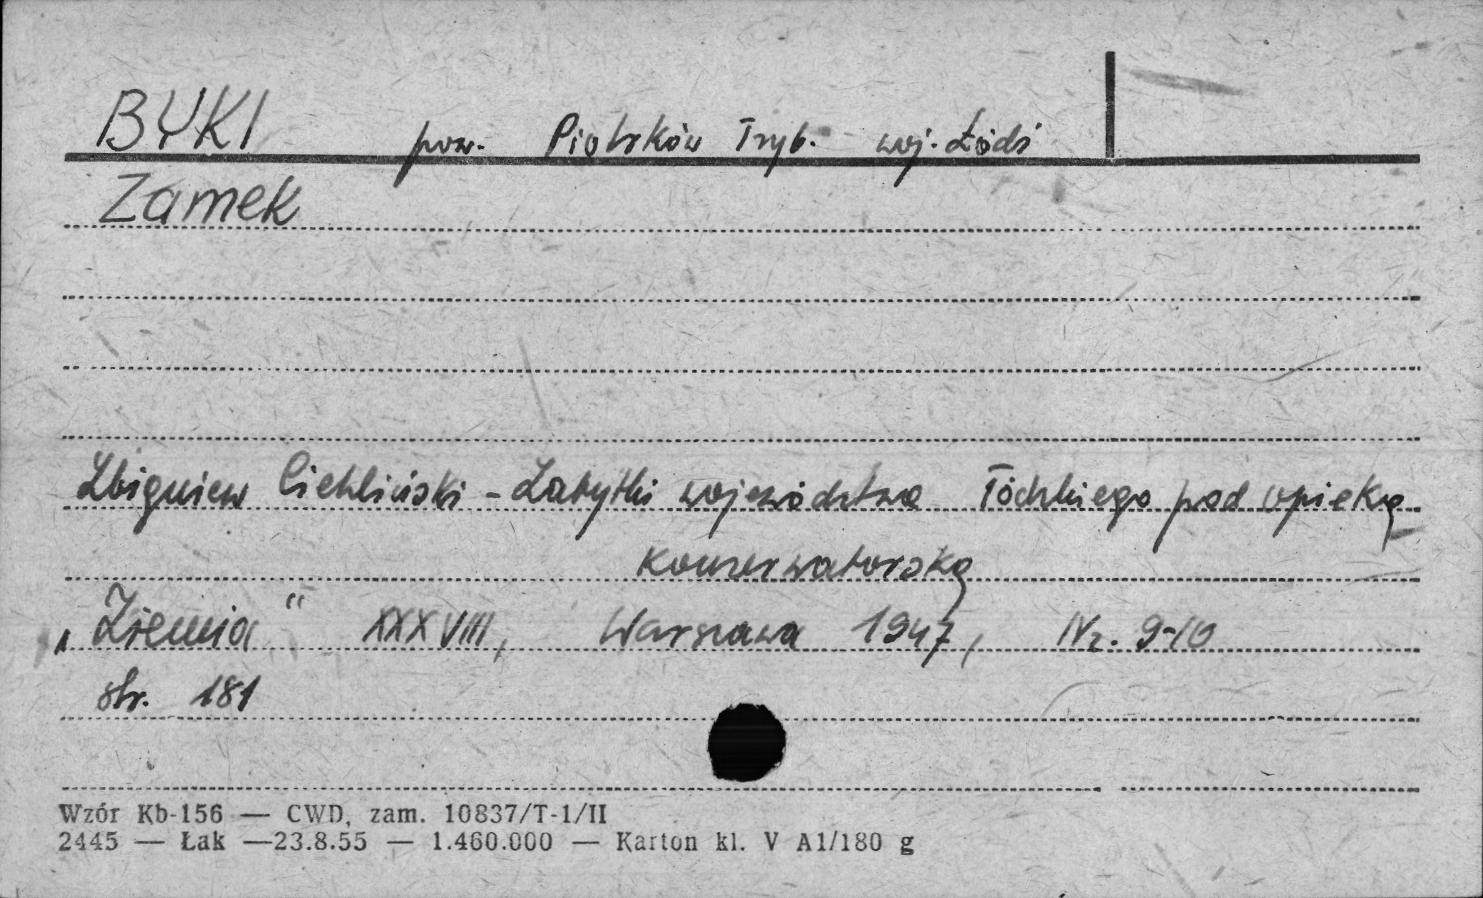 BYKI pow. Piotrków Tryb. woj. Łódź
Zamek
Zbigniew Ciekliński - Zabytki województwa Łódzkiego pod opieką
Konserwatorską
„Ziemia" XXXVIII, Warszawa 1947, Nr. 9-10
str. 181
Wzór Kb-156 — CWD, zam. 10837/T-1/II
2445 — Łak —23.8.55 — 1.460.000 — Karton kl. V A1/180 g